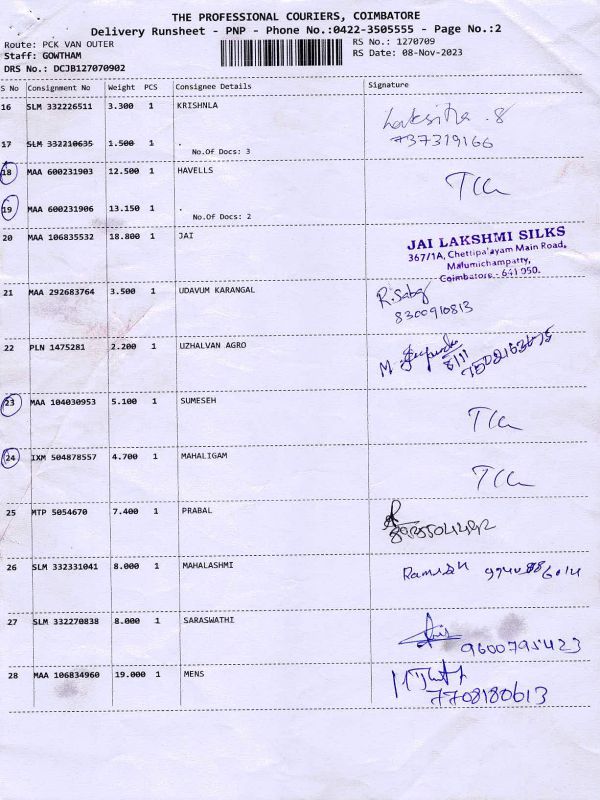 THE PROFESSIONAL COURIERS, COIMBATORE
Delivery Runsheet - PNP - Phone No.:0422-3505555 - Page No.:2
Route: PCK VAN OUTER RS No.: 1270709
Staff: GOWTHAM RS Date: 08-Nov-2023
DRS No.: DCJB127070902
S No Consignment No Weight PCS Consignee Details Signature
16 SLM 332226511 3.300 1 KRISHNLA
17 SLM 332210635 1.500 1 .
737319166
No.Of Docs: 3
18 MAA 600231903 12.500 1 HAVELLS
19 MAA 600231906 13.150 1 .
No.Of Docs: 2
20 MAA 106835532 18.800 1 JAI
JAI LAKSHMI SILKS
367/1A, Chettipalayam Main Road,
Malumichampatty,
Coimbatore - 641 050.
21 MAA 292683764 3.500 1 UDAVUM KARANGAL
8300910813
22 PLN 1475281 2.200 1 UZHALVAN AGRO
23 MAA 104030953 5.100 1 SUMESEH
24 IXM 504878557 4.700 1 MAHALIGAM
25 MTP 5054670 7.400 1 PRABAL
26 SLM 332331041 8.000 1 MAHALASHMI
Ramesh
27 SLM 332270838 8.000 1 SARASWATHI
9600795423
28 MAA 106834960 19.000 1 MENS
7708180613